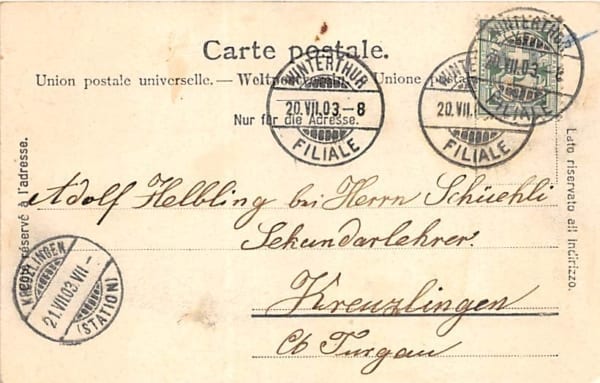 Carte postale.
Union postale universelle. — Weltpostverein. — Unione postale
Nur für die Adresse.
WINTERTHUR
20.VII.03-8
FILIALE
WINTERTHUR
20.VII.
FILIALE
WINTERTHUR
20.VII.03-8
FILIALE
Côté réservé à l'adresse.
Lato riservato all indirizzo.
Adolf Helbling bei Herrn Schüehli
Sekundarlehrer.
Kreuzlingen
Ct Turgau
KREUZLINGEN
21.VII.03.VII-
(STATION)